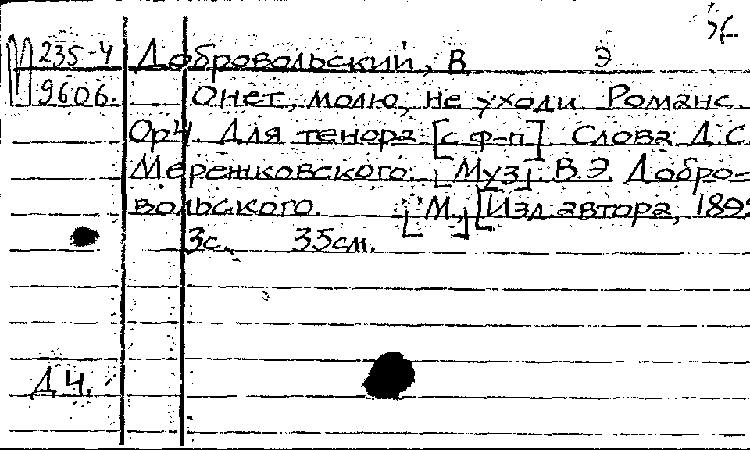 235-4 Добровольский, В Э
9606. О нет, молю, не уходи Романс.
Ор 4. Для тенора [с ф-п]. Слова Д.С.
Мережковского. [Муз] В.Э. Добро-
вольского. [М.], [Изд автора, 189
3с. 35см.
Д Ч.